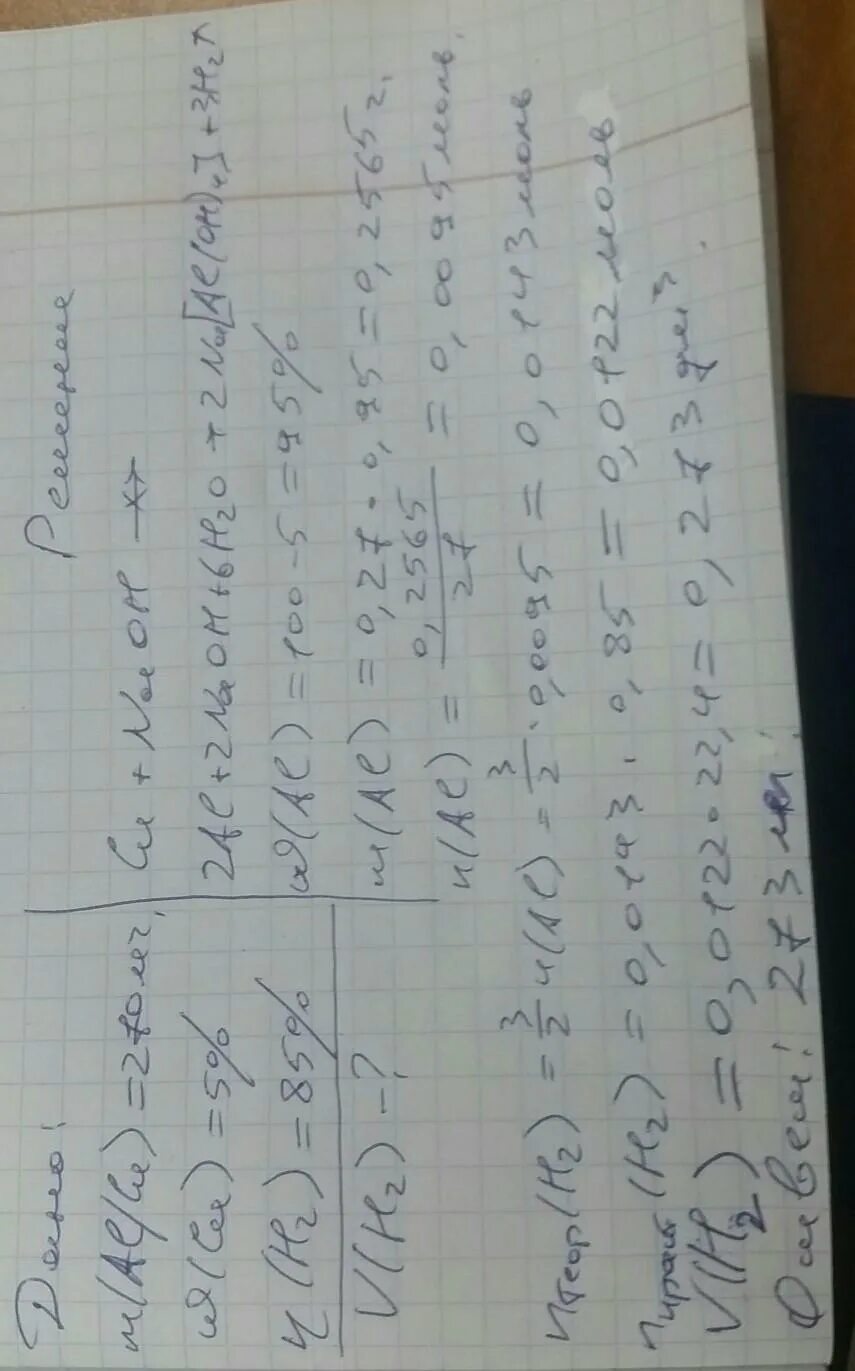 Дано:
m(Al/Cu) = 270 мг.
ω(Cu) = 5%
η(H₂) = 85%
V(H₂) - ?
Решение
Cu + NaOH ↛
2Al + 2NaOH + 6H₂O → 2Na[Al(OH)₄] + 3H₂↑
ω(Al) = 100 - 5 = 95%
m(Al) = 0,27 · 0,95 = 0,2565 г.
n(Al) = 0,2565/27 = 0,0095 моль.
nтеор(H₂) = 3/2 n(Al) = 3/2 · 0,0095 = 0,0143 моль
nпракт(H₂) = 0,0143 · 0,85 = 0,0122 моль
V(H₂) = 0,0122 · 22,4 = 0,273 дм³.
Ответ: 273 мл.